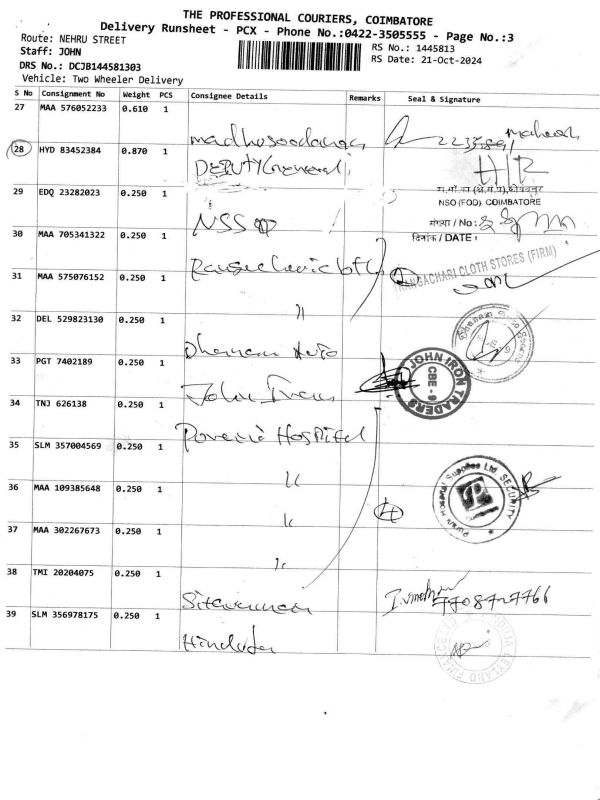 THE PROFESSIONAL COURIERS, COIMBATORE
Delivery Runsheet - PCX - Phone No.:0422-3505555 - Page No.:3
Route: NEHRU STREET
Staff: JOHN
DRS No.: DCJB144581303
Vehicle: Two Wheeler Delivery
RS No.: 1445813
RS Date: 21-Oct-2024
S No Consignment No Weight PCS Consignee Details Remarks Seal & Signature
27 MAA 576052233 0.610 1
madhusoodanan
28 HYD 83452384 0.870 1
DEPUTY General
29 EDQ 23282023 0.250 1
NSO (FOD), COIMBATORE
NSSO
संख्या / No :
30 MAA 705341322 0.250 1
दिनांक / DATE :
RANGACHARI CLOTH STORES (FIRM)
31 MAA 575076152 0.250 1
"
32 DEL 529823130 0.250 1
Dhanam Auto
33 PGT 7402189 0.250 1
JOHN IRON TRADERS
CBE - 9
John Iron
34 TNJ 626138 0.250 1
Hospital
35 SLM 357004569 0.250 1
"
Supplies Ltd SECURITY
36 MAA 109385648 0.250 1
"
37 MAA 302267673 0.250 1
"
38 TMI 20204075 0.250 1
7708727766
39 SLM 356978175 0.250 1
Hinduja
LEYLAND FINANCE LTD